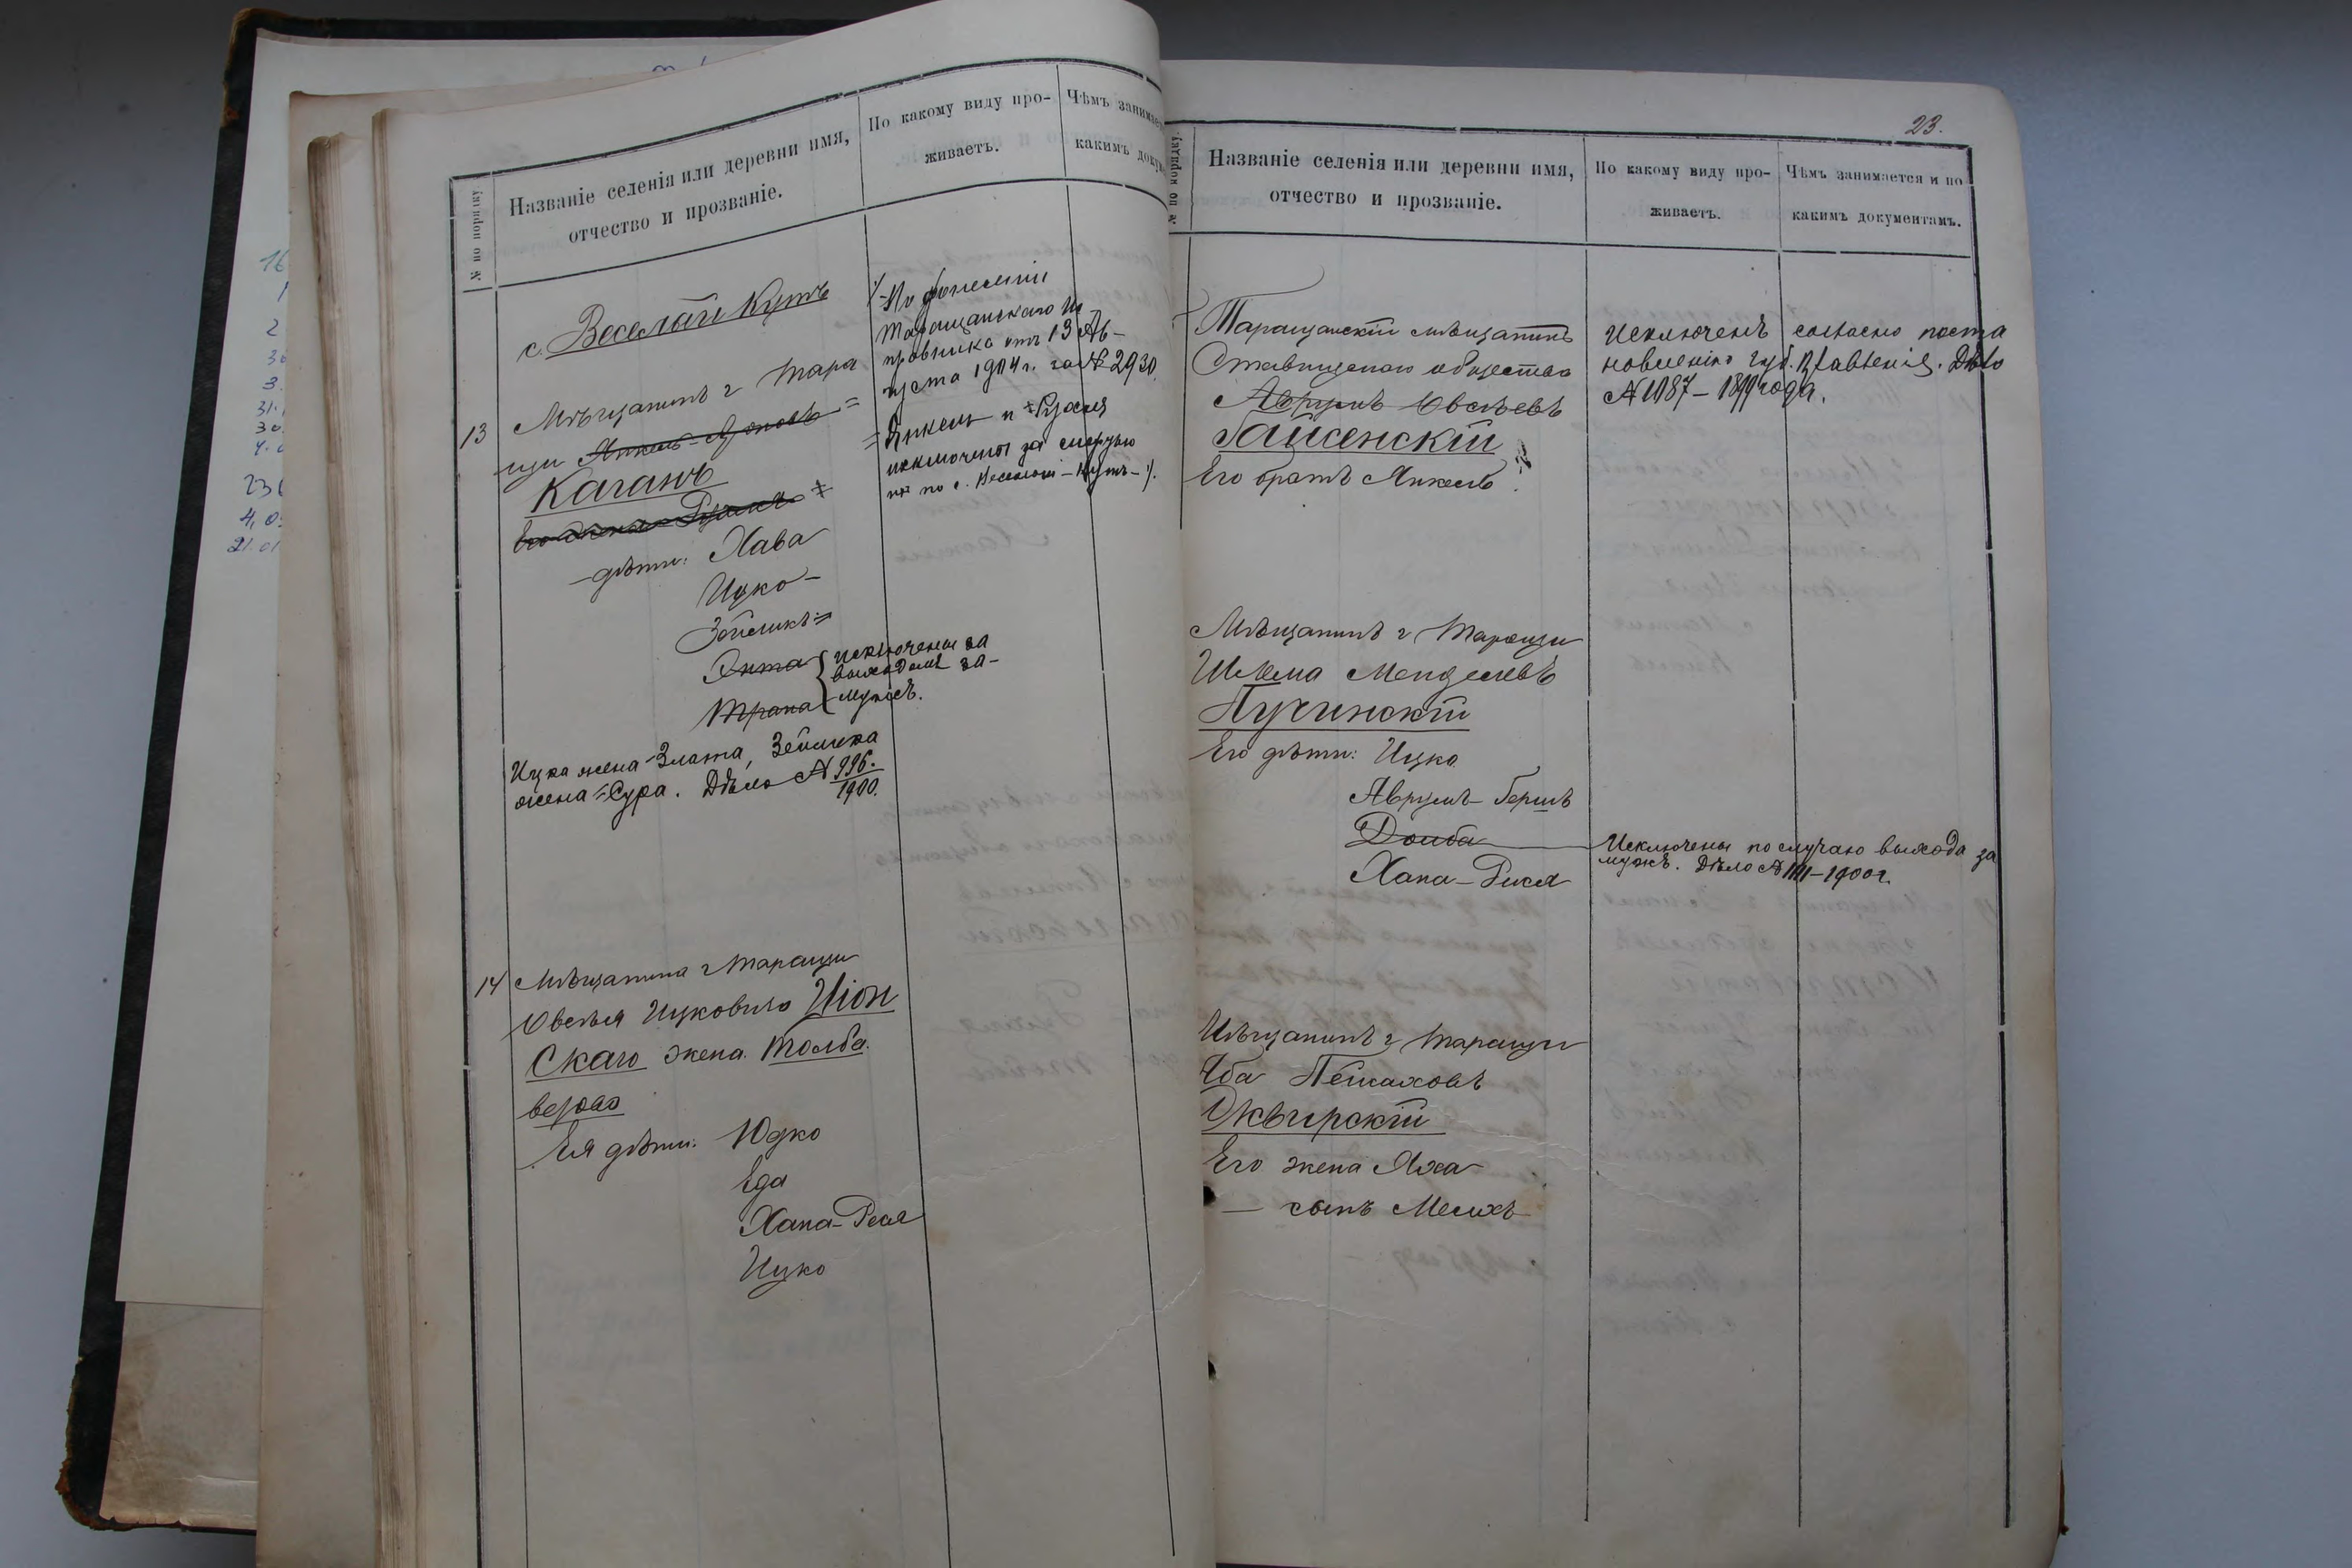 № по порядку
Названіе селенія или деревни имя,
отчество и прозваніе.
По какому виду про-
живаетъ.
Чѣмъ занимае
какимъ доку
с. Веселый Кутъ
13 Мѣщанинъ г Тара
щи Янкель
Каганъ
Его жена Рухля
дѣти: Хава
Ицко
Зейликъ
Энта
Трана
исключены за
выходомъ за-
мужъ.
Ицка жена - Злата, Зейлика
жена = Сура. Дѣло № 996.
1900.
По донесенію
Таращанскаго Ис
правника отъ 13 Ав-
густа 1904 г. за № 2930.
= Янкель и Рухля
исключены за смертью
по с. Веселый - Кутъ
14 Мѣщанина г Таращи
Овсѣя Ицковича
Скаго жена
Ея дѣти: Юдко
Еда
Хана-Рейя
Ицко
16
1
2
3
31.
30
4.0
4,0
21.01
23.
№ по порядку
Названіе селенія или деревни имя,
отчество и прозваніе.
По какому виду про-
живаетъ.
Чѣмъ занимается и по
какимъ документамъ.
Таращанскій мѣщанинъ
Ставищскаго общества
Аврумъ Овсѣевъ
Гайсенскій
Его братъ Янкель
Исключенъ согласно поста
новленію губ. Правленія. Дѣло
№ 1187 - 1899 года.
Мѣщанинъ г Таращи
Шлема Менделевъ
Пугинскій
Его дѣти: Ицко
Аврумъ-Бершъ
Доиба
Хана-Рися
Исключены по случаю выхода за
мужъ. Дѣло № 1111-1900 г.
Мѣщанинъ г Таращи
Аба Пейсаховъ
Сквирскій
Его жена Хая
- сынъ Мелихъ